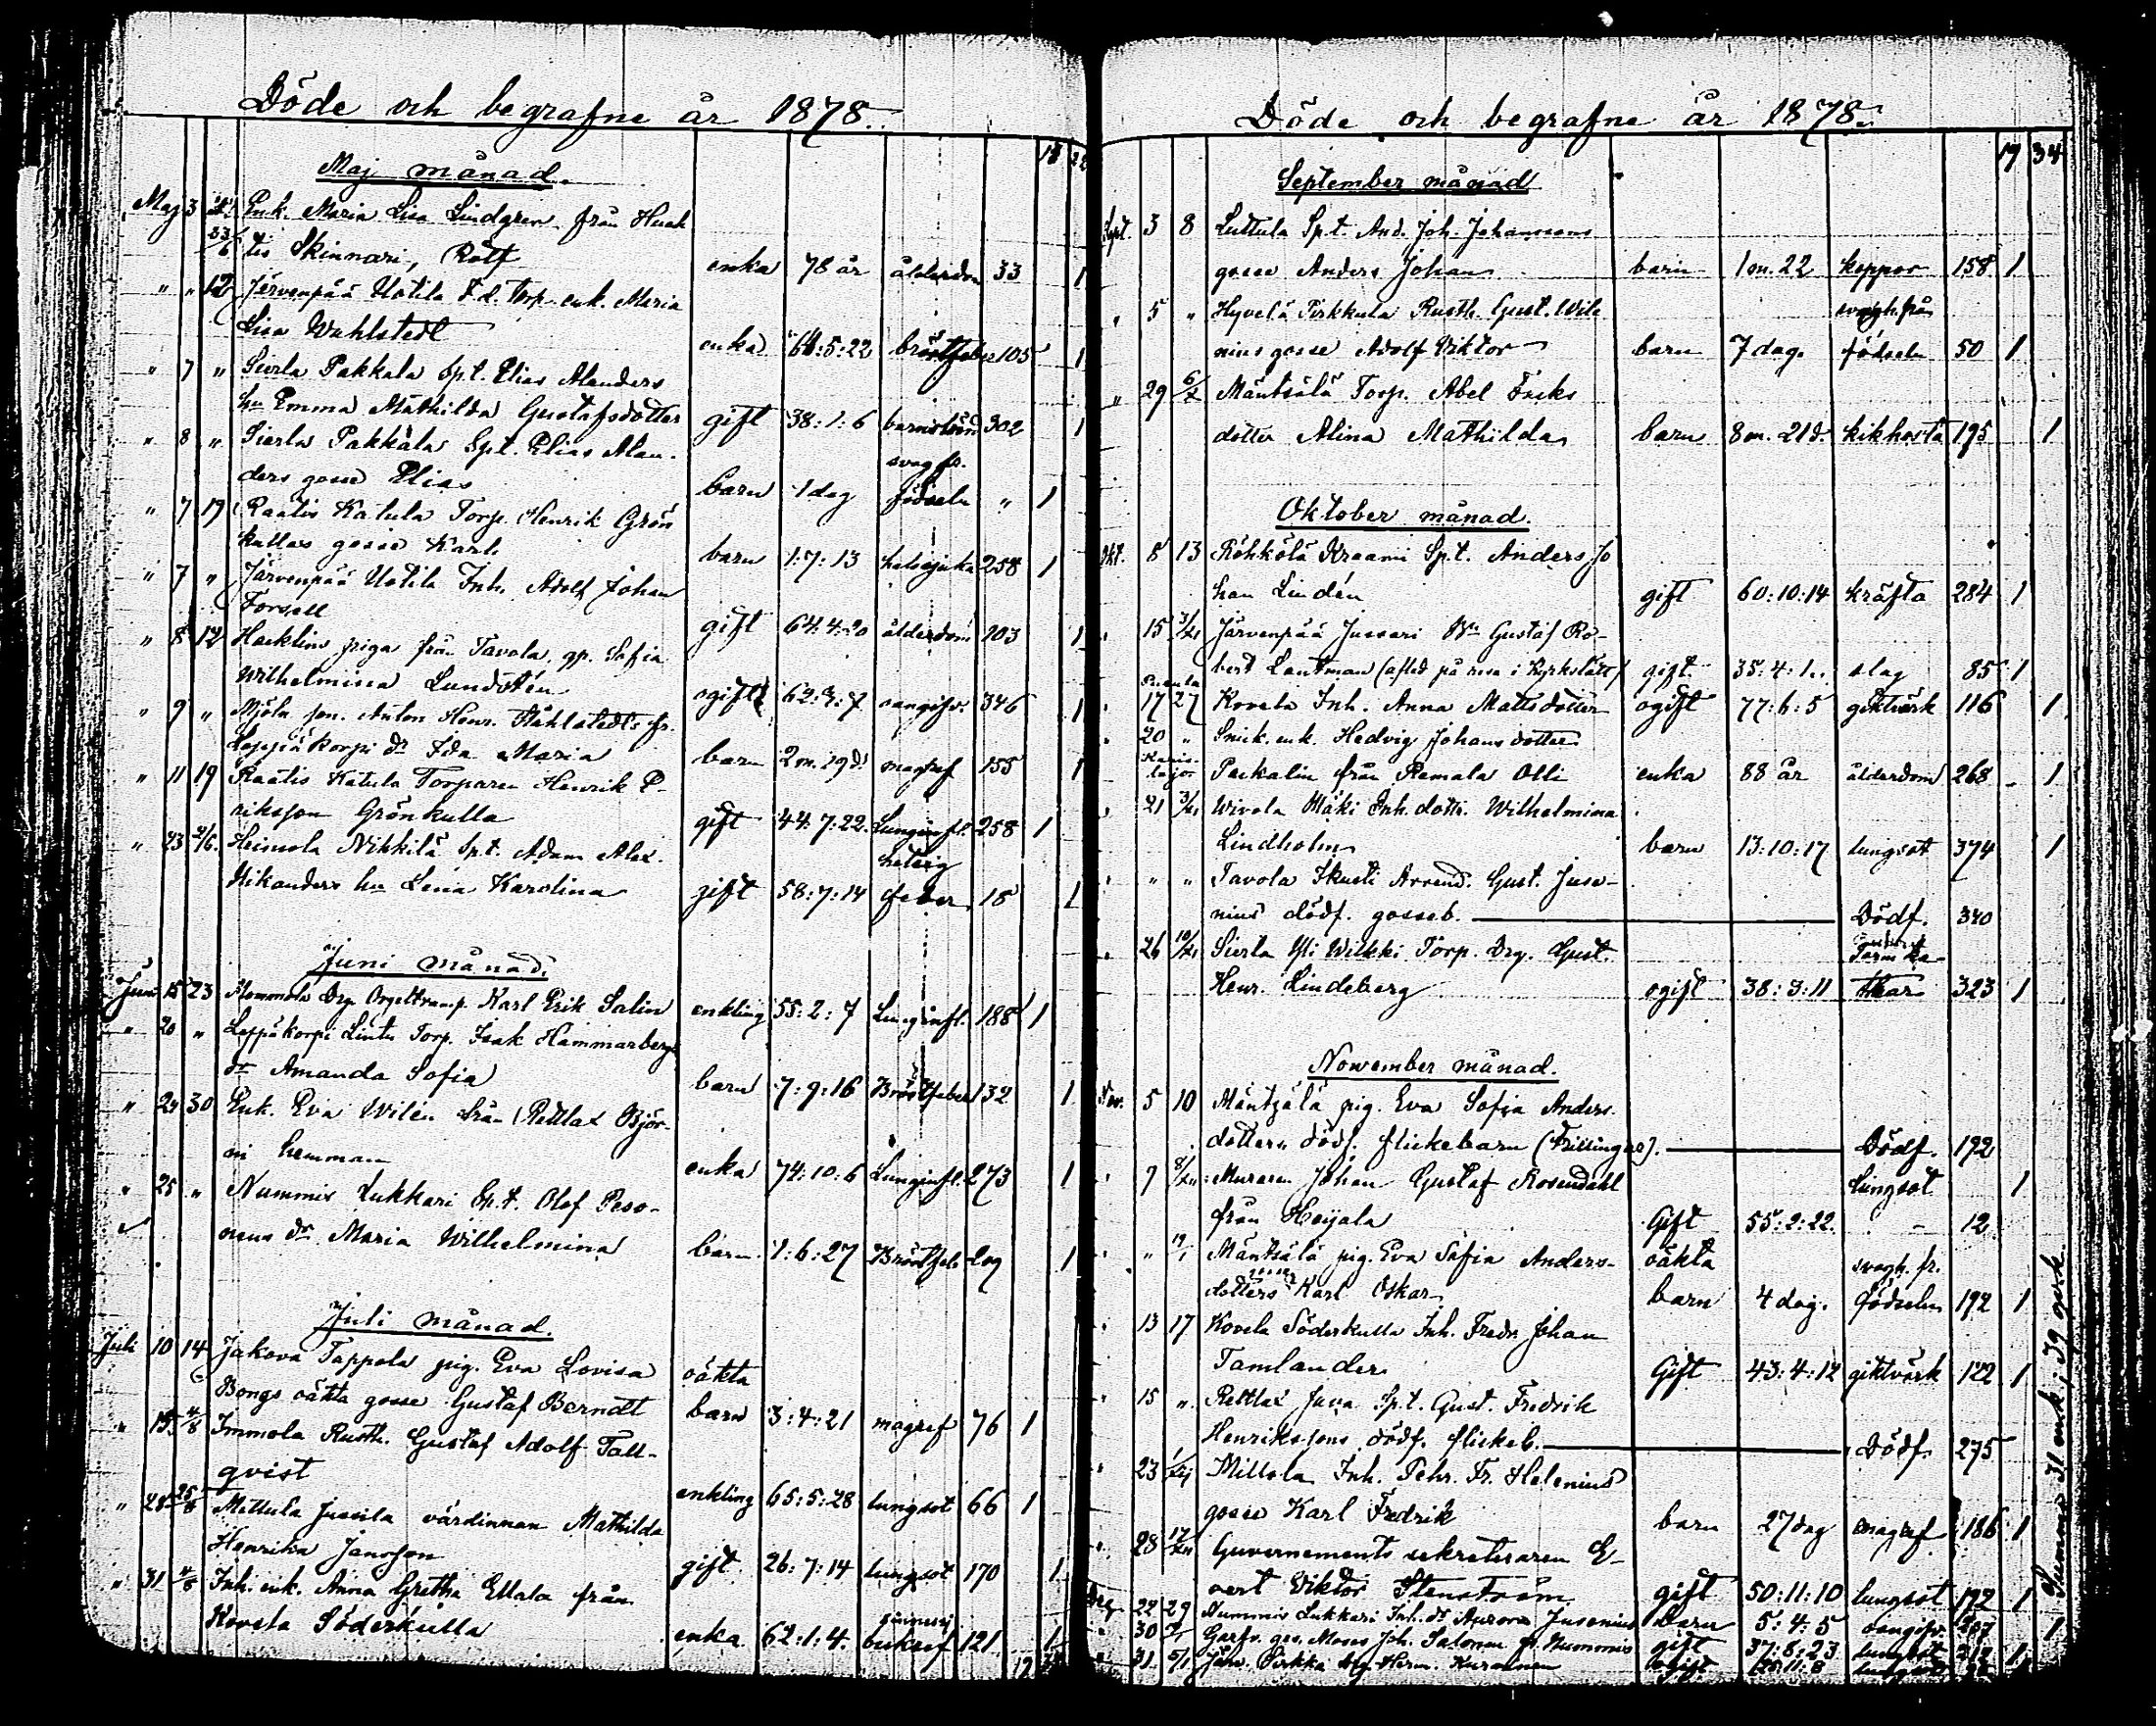 Döde och begrafne år 1878.
18 22
Maj månad.
Maj 3 Enk. Maria Lisa Lindgren från Huak
23/6 tis Skinnari, Rotf enka 78 år ålderdom 33 1
" " 12 Järvenpää Uotila F.d. Torp. enk. Maria
Lisa Wahlstedt enka 64:5:22 bröstfeber 105 1
" 7 " Sierla Pakkala Spt. Elias Alanders
hu Emma Mathilda Gustafsdotter gift 38:1:6 barnsbörd 302 1
" 8 " Sierla Pakkala Spt. Elias Alan- svag fr.
ders gosse Elias barn 1 dag födseln " 1
" 7 19 Raatis Katula Torp. Henrik Grön
kullas gosse Karl barn 1:7:13 halssjuka 258 1
" 7 " Järvenpää Uotila Inh. Adolf Johan
Forsell gift 64:4:20 ålderdom 103 1
" 8 12 Haeklin piga från Tavola, gp. Sofia
Wilhelmina Lundstén ogift 62:3:7 oangifv. 346 1
" 9 " Mjöln. son. Anton Henr. Ståhlstedts fr.
Leppäkorpi dr Ida Maria barn 2 m. 29 d. magref 155 1
" 11 19 Raatis Katula Torparen Henrik E-
riksson Grönkulla gift 44:7:22. Lunginfl. 258 1
" 23 2/6. Heimola Nikkilä Spt. Adam Alex. hetsig
Nikanders hu Lena Karolina gift 58:7:14 feber 18 1
Juni månad.
Juni 15 23 Mommola Drg Orgeltramp. Karl Erik Salin enkling 55:2:7 Lunginfl. 188 1
" 20 " Leppäkorpi Lintu Torp. Isak Hammarbergs
dr Amanda Sofia barn 7:9:16 Bröstfeber 132 1
" 24 30 Enk. Eva Wilén från Rettlax Björ-
ni hemman enka 74:10:6 Lunginfl. 273 1
" 25 " Nummis Lukkari Sp.t. Olof Peso-
nens dr Maria Wilhelmina barn 1:6:27 Bröstfeb 209 1
Juli månad.
Juli 10 14 Jakova Tappola pig. Eva Lovisa oäkta
Bongs oäkta gosse Gustaf Berndt barn 3:4:21 magref 76 1
" 15 4/8 Immola Rusth. Gustaf Adolf Tall-
qvist enkling 65:5:28 lungsot 66 1
" 28 25/8 Mittula Jussila värdinnan Mathilda
Henrika Jansson gift 26:7:14 lungsot 170 1
" 31 4/8 Inh. enk. Anna Gretha Ellala från
Kovela Söderkulla enka 62:1:4. bukref 121 1
Döde och begrafne år 1878.
17 34
September månad
Sept. 3 8 Luttula Sp.t. And. Joh. Johanssons
gosse Anders Johan barn 1 m. 22 koppor 158 1
" 5 " Hyvelä Pirkkula Rusth. Gust. Wile svagh. från
nius gosse Adolf Viktor barn 7 dag. födseln 50 1
" 29 6/X Mäntsälä Torp. Abel Ericks
dotter Alina Mathilda barn 8 m. 21 d. kikhosta 195 1
Oktober månad.
Okt. 8 13 Röhkölä Kraami Sp.t. Anders Jo
han Lindén gift 60:10:14 kräfta 284 1
" 15 3/XI Järvenpää Jussari Bn Gustaf Ro-
bert Lantman (afled på resa i Kyrkslätt) gift. 35:4:1.. slag 85 1
" 17 27 Kovela Inh. Anna Mattsdotter ogift 77:6:5 giktvärk 116 1
" 20 " Snick. enk. Hedvig Johansdotter
Karislojo Packalin från Remala Olli enka 88 år ålderdom 268 1
" 21 3/XI Wivola Mäki Inh. dottr. Wilhelmina
Lindholm barn 13:10:17 lungsot 374 1
" " " Tavola Skusti Arrend. Gust. Juse-
nius dödf. gosseb. Dödf. 340
" 26 10/XI Sierla Yli Wilkki Torp. Drg. Gust.
Henr. Lindeberg ogift 38:3:11 323 1
November månad.
Nov. 5 10 Mäntsälä pig. Eva Sofia Anders-
dotters dödf. flickebarn (Trillingar). Dödf. 192
" 7 8/XII Muraren Johan Gustaf Rosendahl Lungsot 1
från Hoijala Gift 55:2:22. - 12
" " 19/1 Mäntsälä pig. Eva Sofia Anders- oäkta svagh. fr.
dotters gosse Karl Oskar barn 4 dag. födseln 192 1
" 13 17 Kovela Söderkulla Inh. Fredr. Johan
Tamlander Gift 43:4:12 giktvärk 122 1
" 15 " Rettlax Juva Sp.t. Gust. Fredrik
Henrikssons dödf. flickeb. Dödf. 275
" 23 1/XII Millola Inh. Pehr. Fr. Helenius
gosse Karl Fredrik barn 27 dag magref 186 1
" 28 12/XII Guvernements sekreteraren E-
vert Viktor Stenström gift 50:11:10 lungsot 172 1
Dec 22 29 Nummis Lukkari Inh. dr Aurora Jusenius barn 5:4:5 oangifv. 207 1
" 30 Garfv. ges. Moses Joh. Salonen fr. Nummis gift 37:8:23 lungsot 212 1
" 31 5/1 Järv. Pirkka Herm.
Summa 31 mk; 39 qvk.